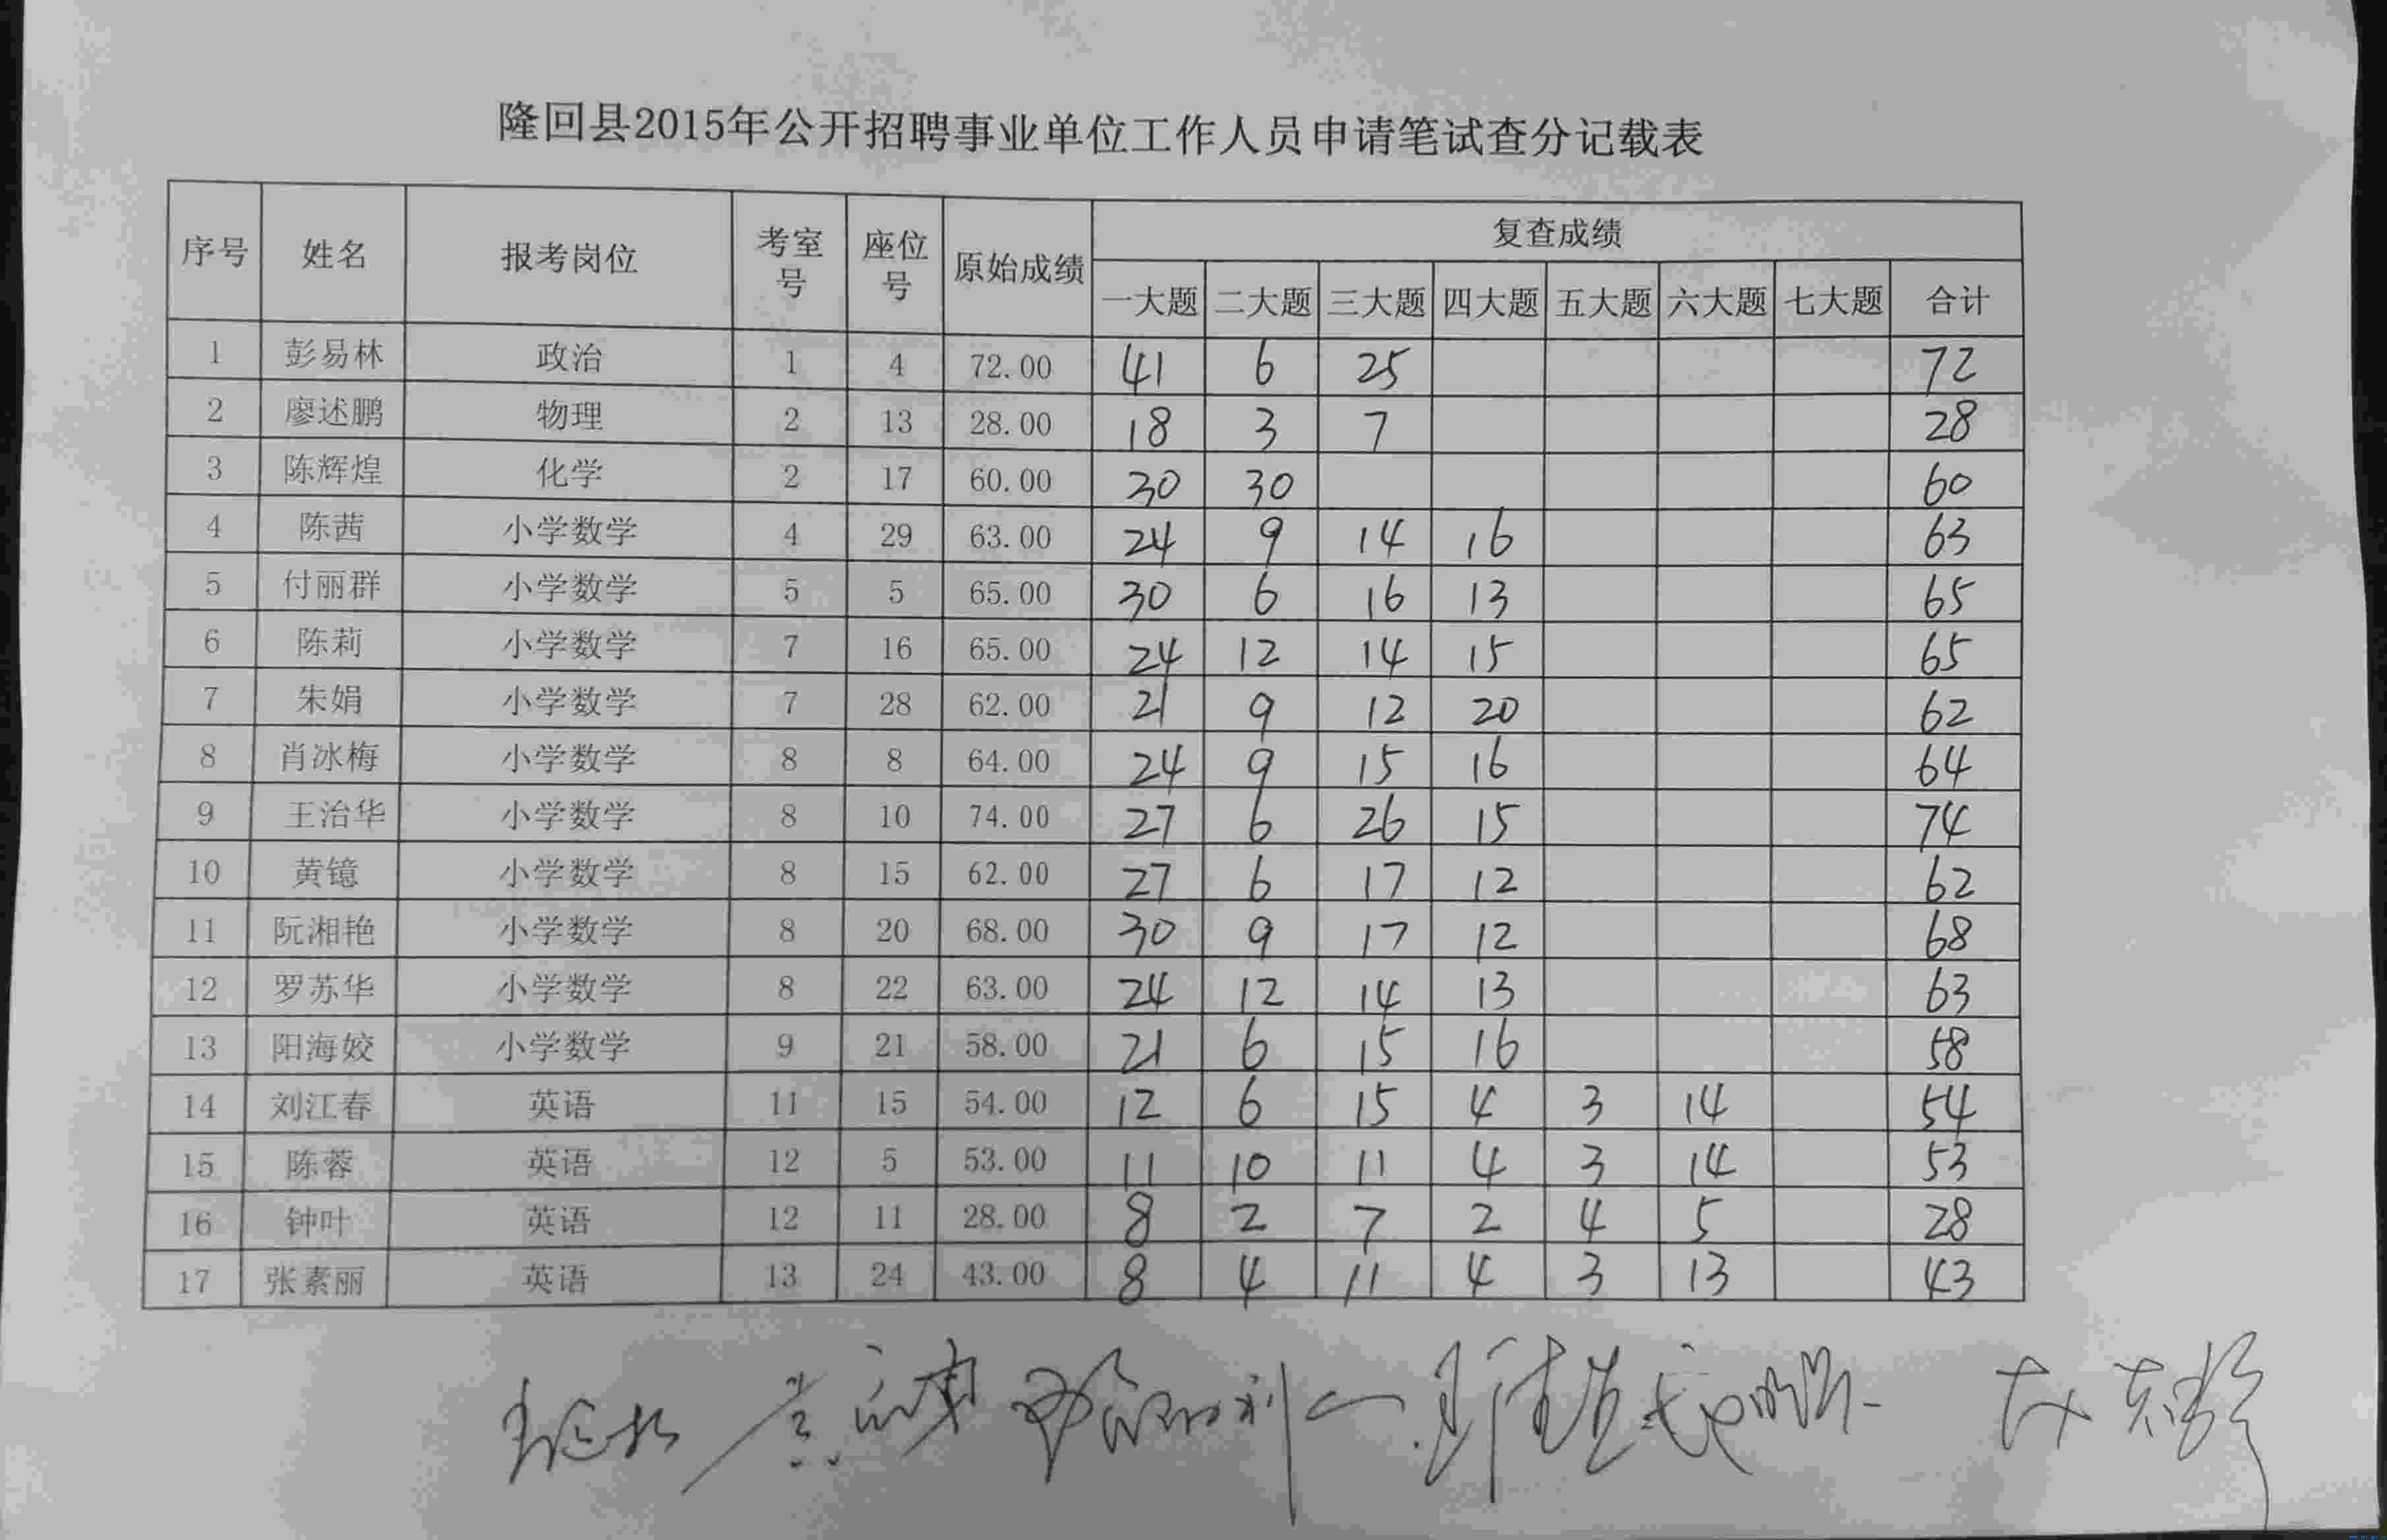 隆回县2015年公开招聘事业单位工作人员申请笔试查分记载表
序号 姓名 报考岗位 考室号 座位号 原始成绩 复查成绩
一大题 二大题 三大题 四大题 五大题 六大题 七大题 合计
1 彭易林 政治 1 4 72.00 41 6 25 72
2 廖述鹏 物理 2 13 28.00 18 3 7 28
3 陈辉煌 化学 2 17 60.00 30 30 60
4 陈茜 小学数学 4 29 63.00 24 9 14 16 63
5 付丽群 小学数学 5 5 65.00 30 6 16 13 65
6 陈莉 小学数学 7 16 65.00 24 12 14 15 65
7 朱娟 小学数学 7 28 62.00 21 9 12 20 62
8 肖冰梅 小学数学 8 8 64.00 24 9 15 16 64
9 王治华 小学数学 8 10 74.00 27 6 26 15 74
10 黄镱 小学数学 8 15 62.00 27 6 17 12 62
11 阮湘艳 小学数学 8 20 68.00 30 9 17 12 68
12 罗苏华 小学数学 8 22 63.00 24 12 14 13 63
13 阳海姣 小学数学 9 21 58.00 21 6 15 16 58
14 刘江春 英语 11 15 54.00 12 6 15 4 3 14 54
15 陈蓉 英语 12 5 53.00 11 10 11 4 3 14 53
16 钟叶 英语 12 11 28.00 8 2 7 2 4 5 28
17 张素丽 英语 13 24 43.00 8 4 11 4 3 13 43